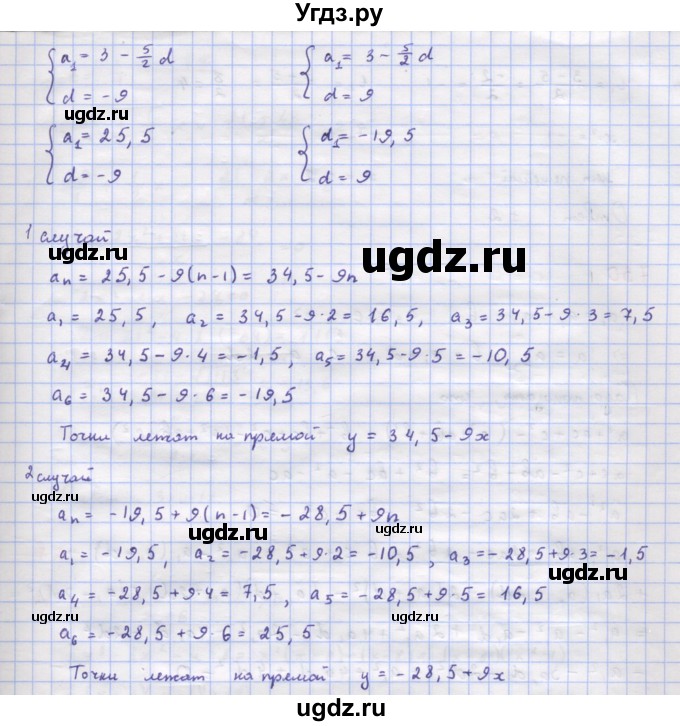 Угдз.ру
{ a₁ = 3 - 5/2 d   { a₁ = 3 - 5/2 d
d = -9   d = 9
ugdz.ru
ugdz.ru
{ a₁ = 25,5   { d₁ = -19,5
d = -9   d = 9
1 случай
ugdz.ru
ugdz.ru
aₙ = 25,5 - 9(n-1) = 34,5 - 9n
a₁ = 25,5, a₂ = 34,5 - 9·2 = 16,5, a₃ = 34,5 - 9·3 = 7,5
a₄ = 34,5 - 9·4 = -1,5, a₅ = 34,5 - 9·5 = -10,5
ugdz.ru
a₆ = 34,5 - 9·6 = -19,5
Точки лежат на прямой y = 34,5 - 9x
2 случай
ugdz.ru
aₙ = -19,5 + 9(n-1) = -28,5 + 9n
ugdz.ru
ugdz.ru
a₁ = -19,5, a₂ = -28,5 + 9·2 = -10,5, a₃ = -28,5 + 9·3 = -1,5
ugdz.ru
ugdz.ru
a₄ = -28,5 + 9·4 = 7,5, a₅ = -28,5 + 9·5 = 16,5
a₆ = -28,5 + 9·6 = 25,5
Точки лежат на прямой y = -28,5 + 9x
ugdz.ru